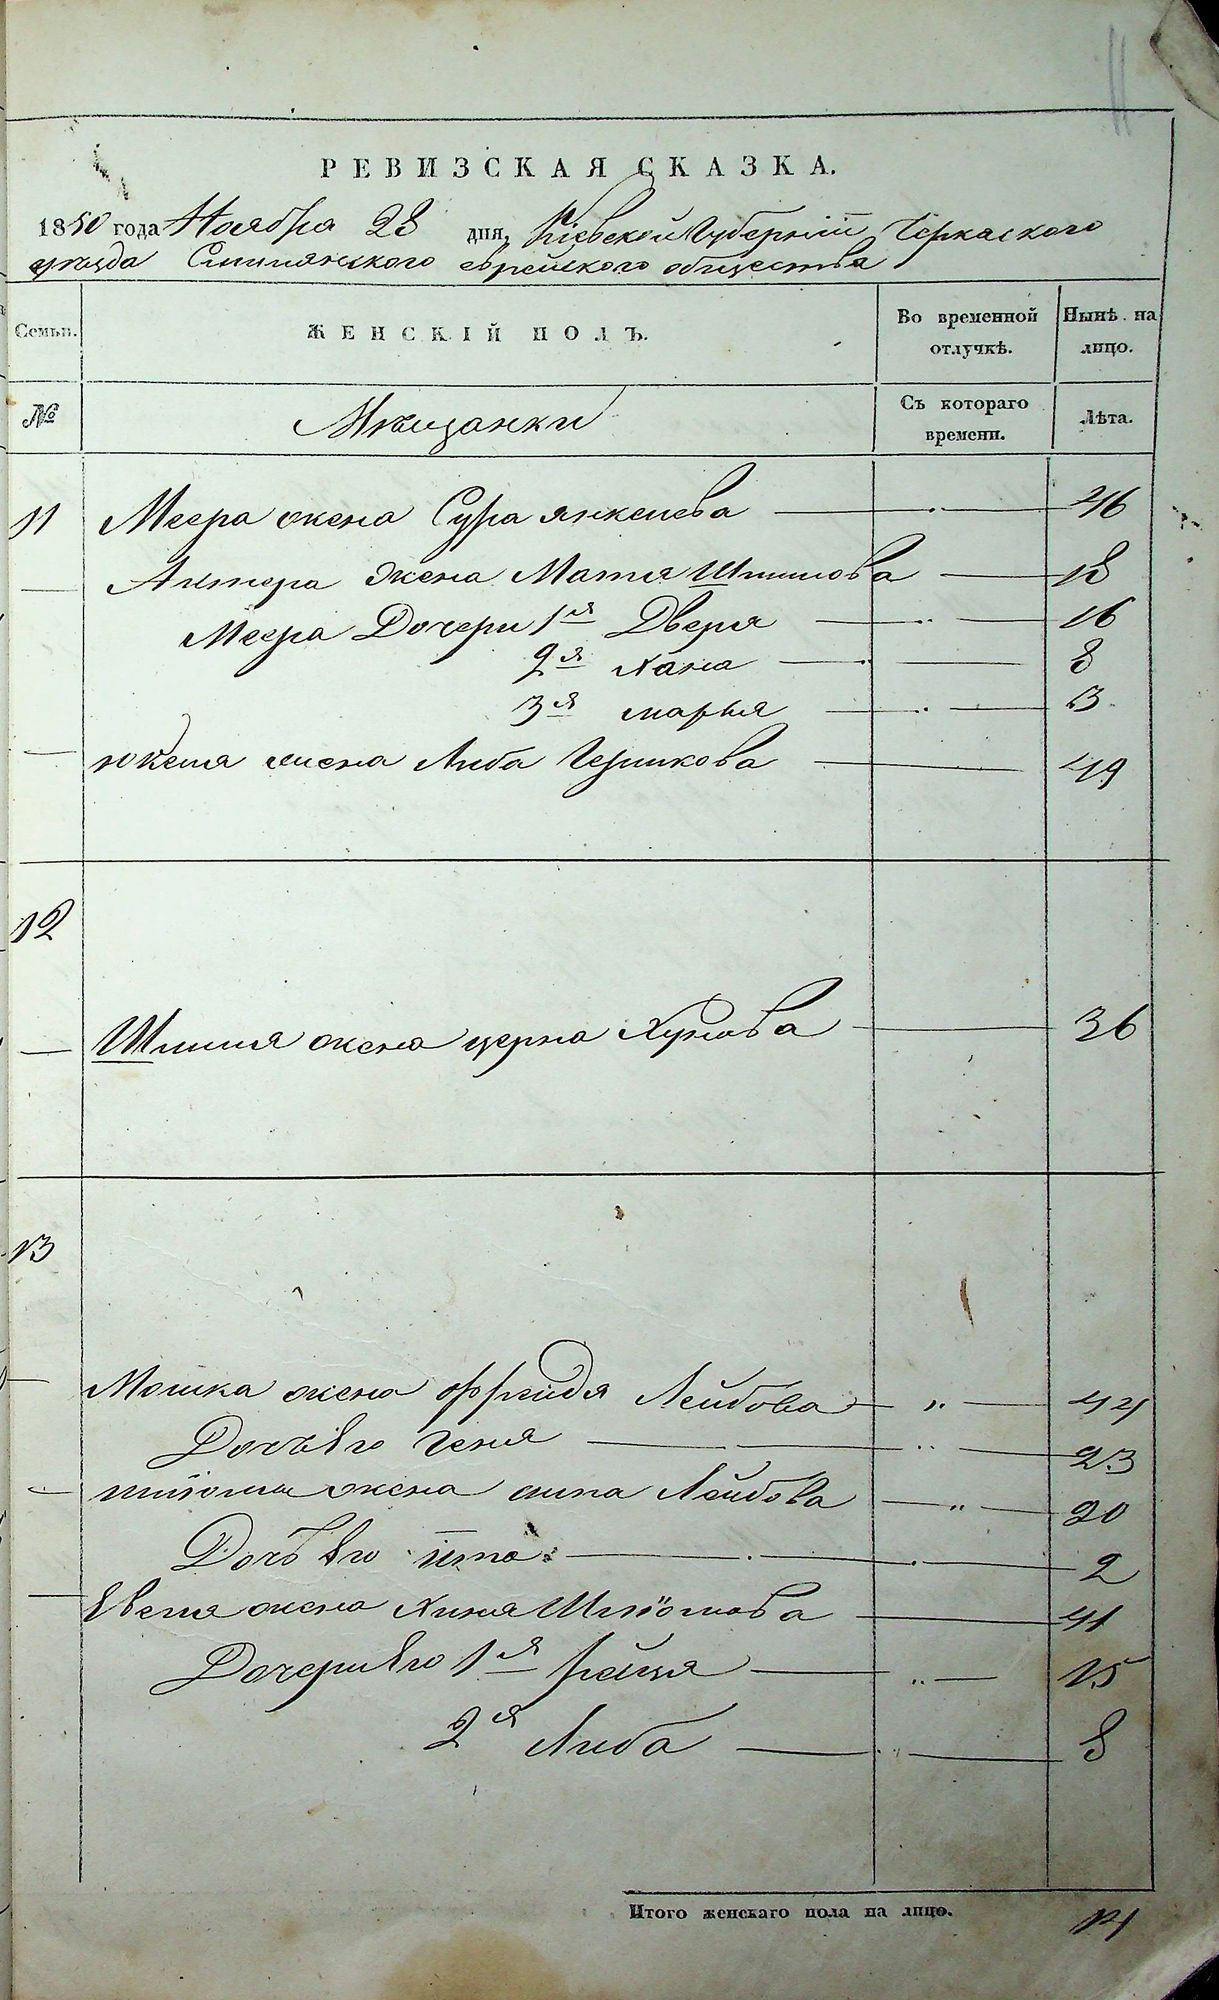 11
РЕВИЗСКАЯ СКАЗКА.
1850 года Ноября 28 дня, Кіевской Губерніи Черкаского
уезда Смилянского еврейского общества
Семьи. ЖЕНСКІЙ ПОЛЪ. Во временной отлучкѣ. Нынѣ на лицо.
№ Мѣщанки Съ котораго времени. Лѣта.
11 Меера жена Сура Янкелева 46
Антера жена Матя Шмулова 18
Меера Дочери 1я Дверя 16
2я Хана 8
3я марья 3
Юкеля жена Либа Гершкова 49
12
Шлиомя жена церна Хунова 36
13
Мошка жена Фрейдя Лейбова 44
Дочь Его Геня 23
жена Лейбова 20
Дочь Его ита 2
жена Хиня 41
Дочери Его 1я рейзя 15
2я Либа 8
Итого женскаго пола на лицо. 14